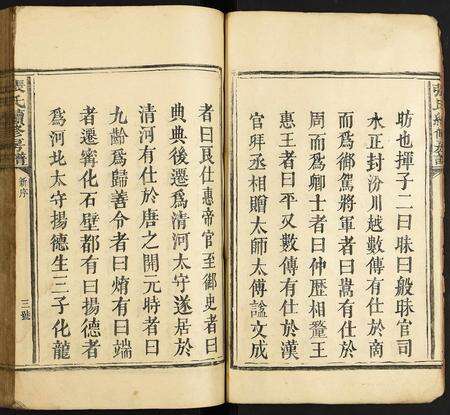 昉也揮子二曰昧曰般昧官司
水正封汾川越數傳有仕於商
而爲鄉駕將軍者曰嵩有仕於
周而爲卿士者曰仲歷相釐王
惠王者曰平又數傳有仕於漢
官拜丞相贈太師太傅諡文成
者曰艮仕惠帝官至御史者曰
典典後遷爲清河太守遂居於
清河有仕於唐之開元時者曰
九齡爲歸善令者曰有曰端
者遷寧化石壁都有曰揚德者
爲河北太守揚德生三子化龍
張氏續修房譜
新序
三號